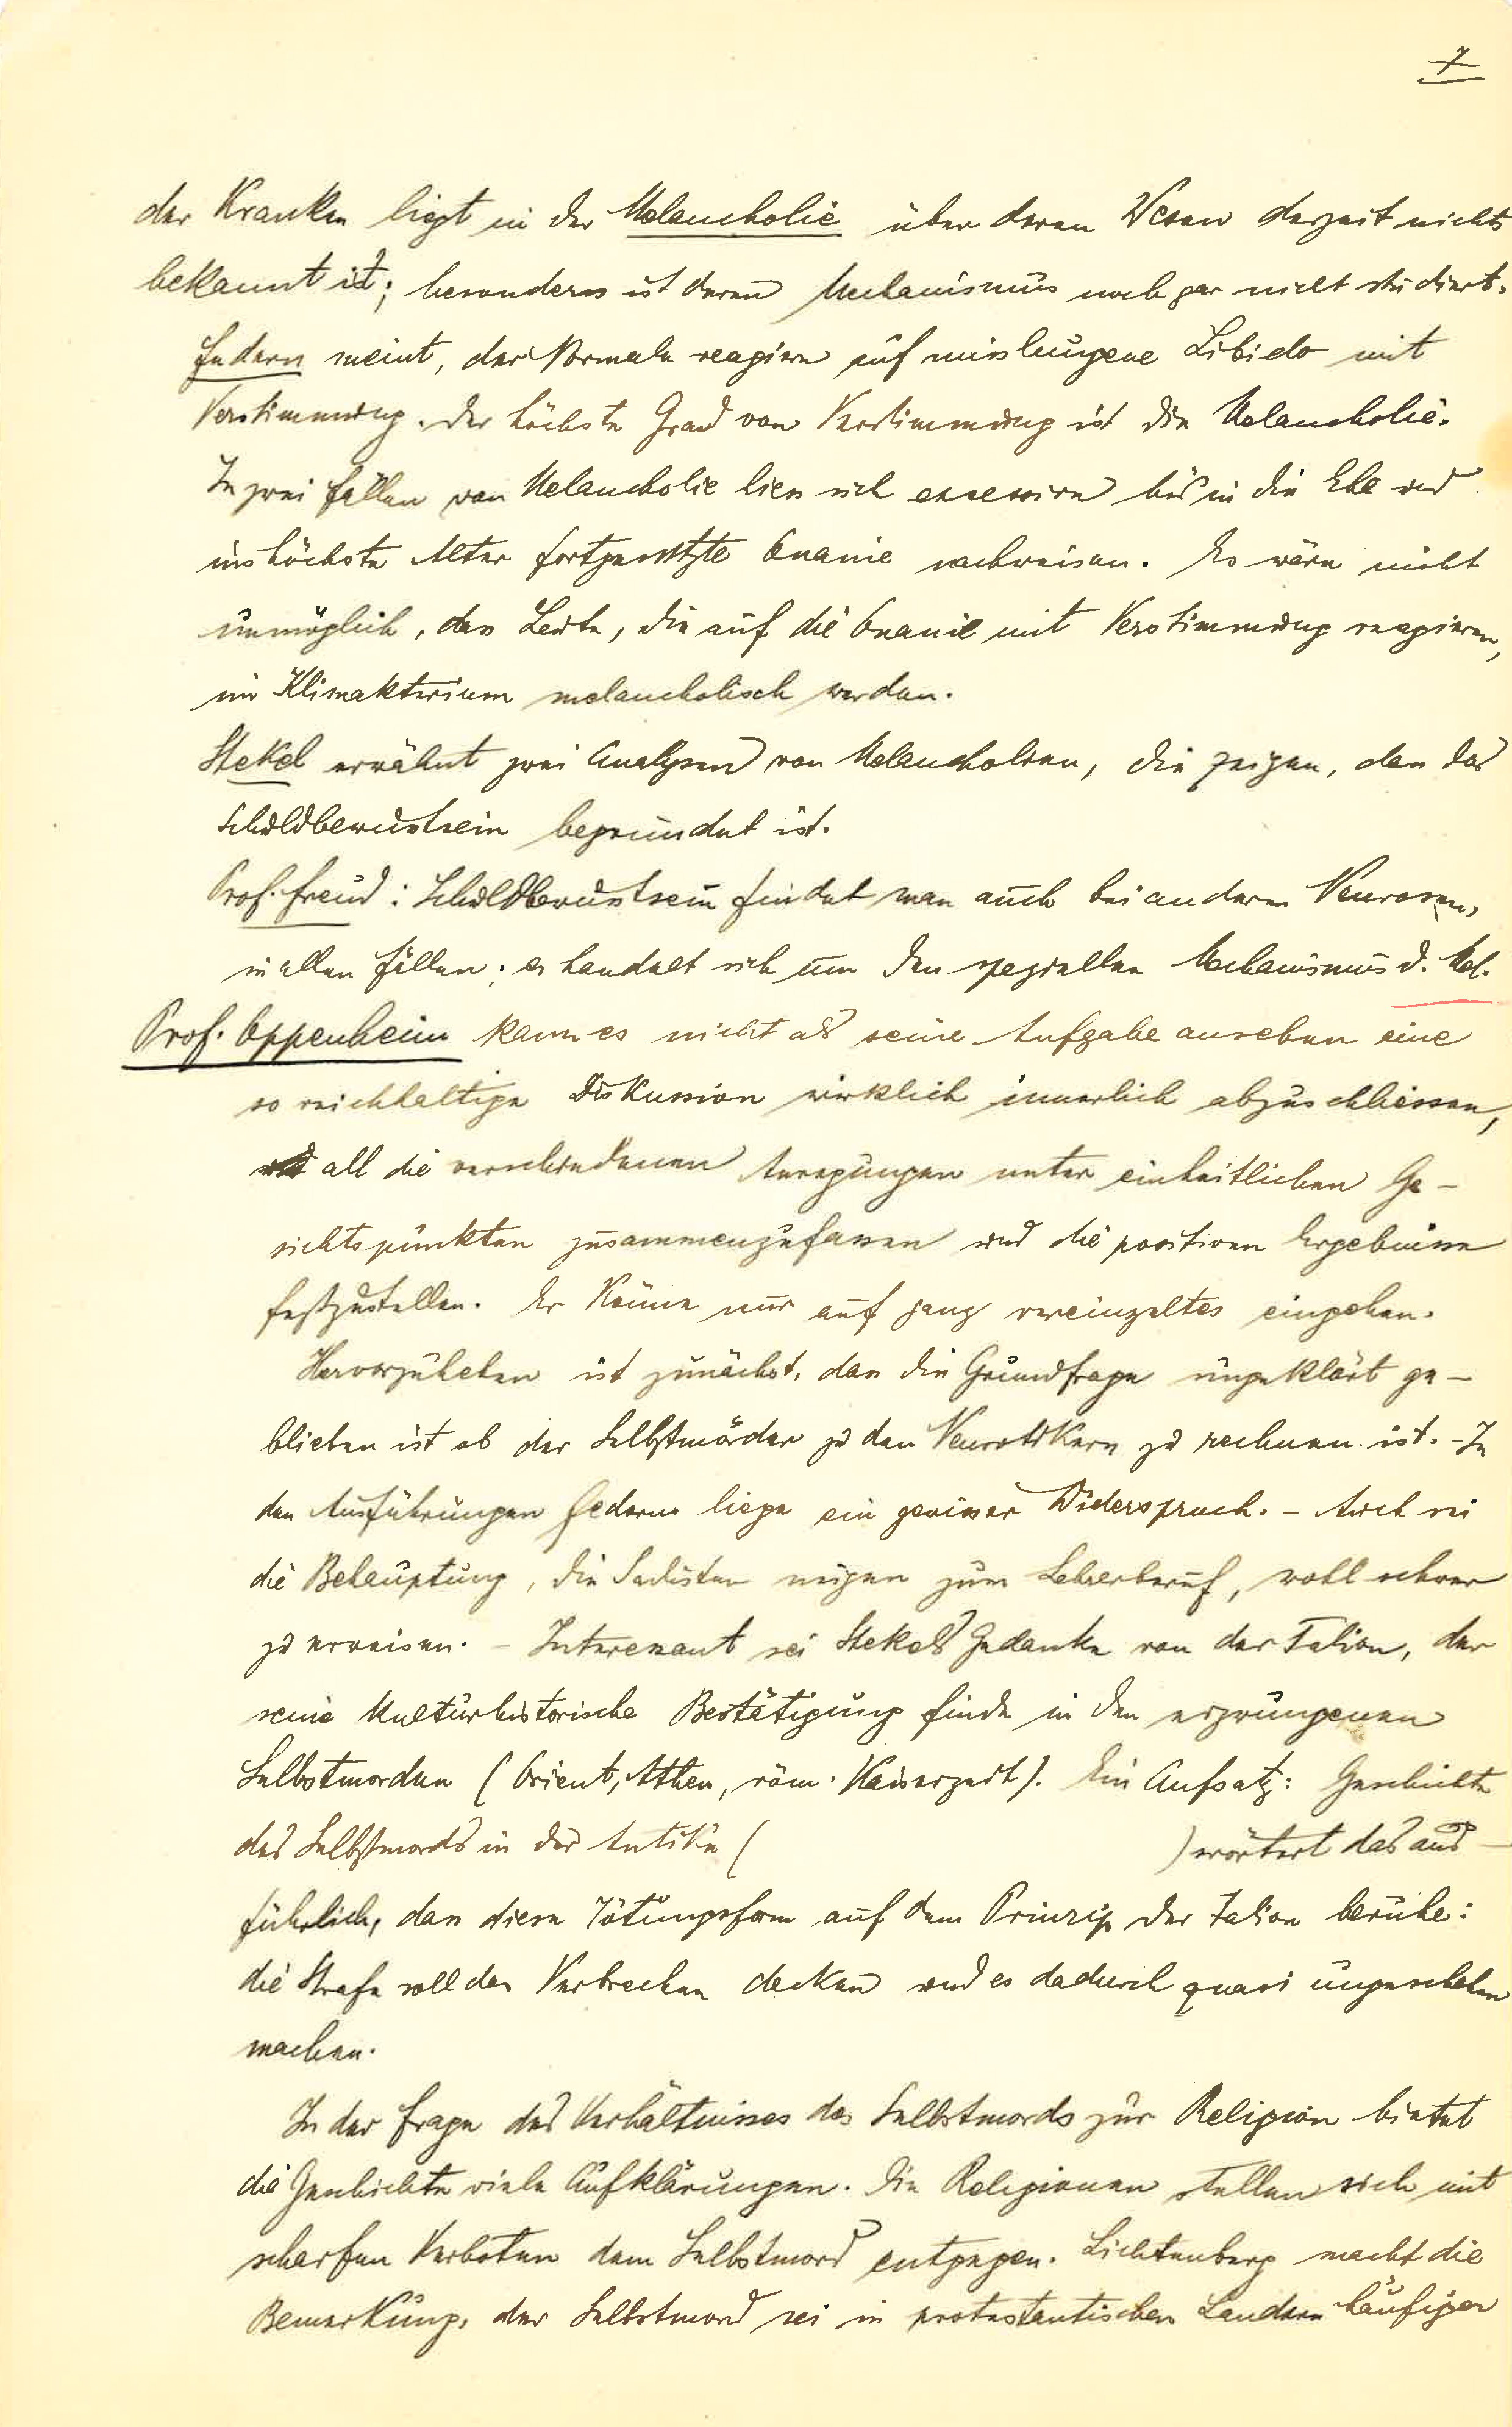 7
der Kranken liegt in der Melancholie über deren Wesen derzeit nichts
bekannt ist; besonders ist deren Mechanismus noch gar nicht studiert.
Federn meint, der Normale reagiere auf misslungene Libido mit
Verstimmung. Der höchste Grad von Verstimmung ist die Melancholie.
In zwei Fällen von Melancholie liess sich excessive bis in die Ehe und
ins höchste Alter fortgesetzte Onanie nachweisen. Es wäre nicht
unmöglich, dass Leute, die auf die Onanie mit Verstimmung reagieren,
im Klimakterium melancholisch werden.
Stekel erwähnt zwei Analysen von Melancholien, die zeigen, dass das
Schuldbewusstsein begründet ist.
Prof. Freud: Schuldbewusstsein findet man auch bei anderen Neurosen,
in allen Fällen; es handelt sich um den speziellen Mechanismus d. Mel.
Prof. Oppenheim kann es nicht als seine Aufgabe ansehen eine
so reichhaltige Diskussion wirklich innerlich abzuschliessen,
all die verschiedenen Anregungen unter einheitlichen Ge-
sichtspunkten zusammenzufassen und die positiven Ergebnisse
festzustellen. Er könne nur auf ganz vereinzeltes eingehen.
Hervorzuheben ist zunächst, dass die Grundfrage ungeklärt ge-
blieben ist ob der Selbstmörder zu den Neurotikern zu rechnen ist. - In
den Ausführungen Federns liege ein gewisser Widerspruch. - Auch sei
die Behauptung, die Sadisten neigen zum Lehrerberuf, wohl schwer
zu erweisen. - Interessant sei Stekels Gedanke von der Talion, der
seine kulturhistorische Bestätigung finde in den erzwungenen
Selbstmorden (Orient, Athen, röm. Kaiserzeit). Ein Aufsatz: Geschichte
des Selbstmords in der Antike ( ) erörtert das aus-
führlich, dass diese Tötungsform auf dem Prinzip der Talion beruhe:
die Strafe soll das Verbrechen decken und es dadurch quasi ungeschehen
machen.
In der Frage des Verhältnisses des Selbstmords zur Religion bietet
die Geschichte viele Aufklärungen. Die Religionen stellen sich mit
scharfen Verboten dem Selbstmord entgegen. Lichtenberg macht die
Bemerkung, der Selbstmord sei in protestantischen Ländern häufiger